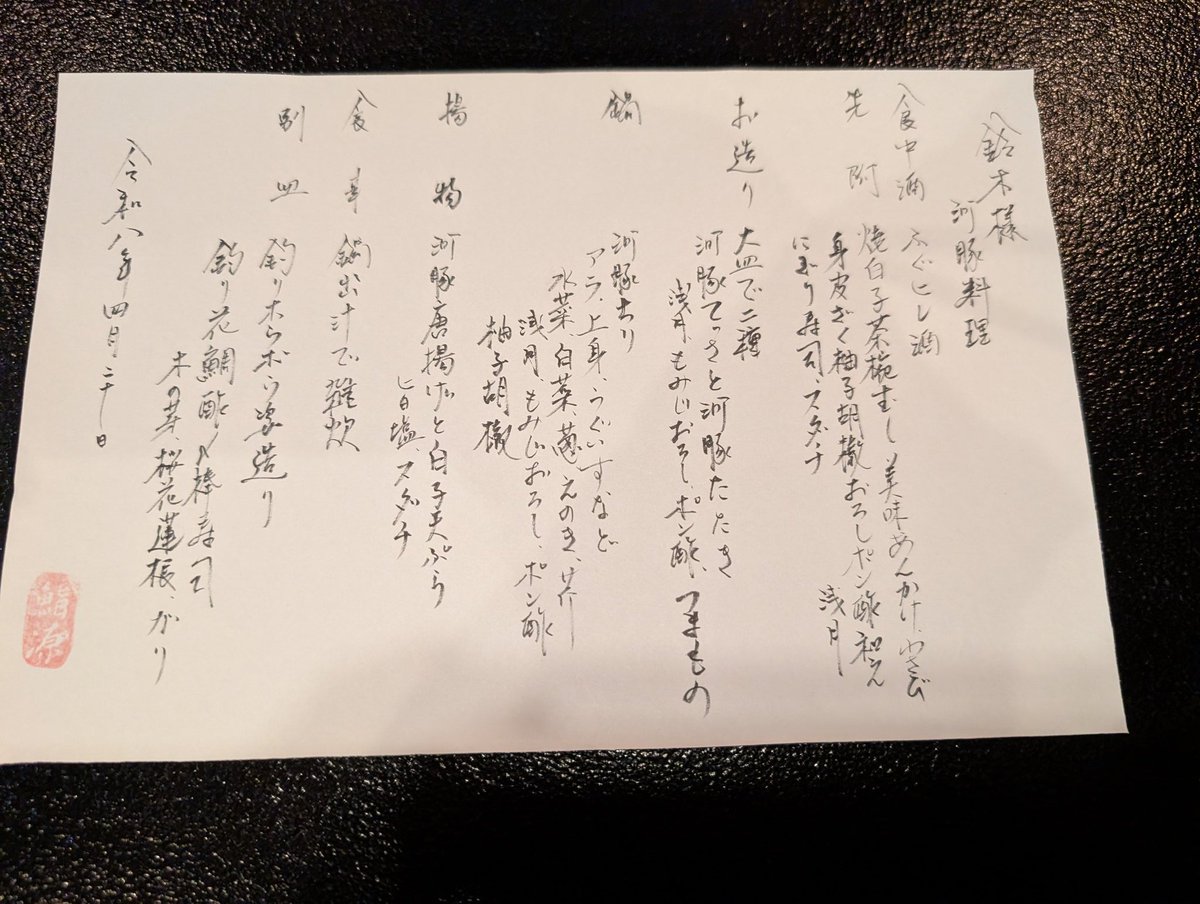 鈴木様
河豚料理
食中酒 ふぐヒレ酒
先附 焼白子茶椀むし 美味あんかけ、わさび
身皮ざく柚子胡椒おろしポン酢和え
浅月
にぎり寿司、スダチ
お造り 大皿で二種
河豚てっさと河豚たたき
浅月、もみじおろし、ポン酢、つまもの
鍋 河豚ちり
アラ、上身、うぐいすなど
水菜、白菜、葱、えのき、
浅月、もみじおろし、ポン酢
柚子胡椒
揚物 河豚唐揚げと白子天ぷら
塩、スダチ
食事 鍋出汁で雑炊
別皿 釣り
釣り花鯛酢〆棒寿司
木の芽、桜花蓮根、がり
令和八年四月二十日
鮨源